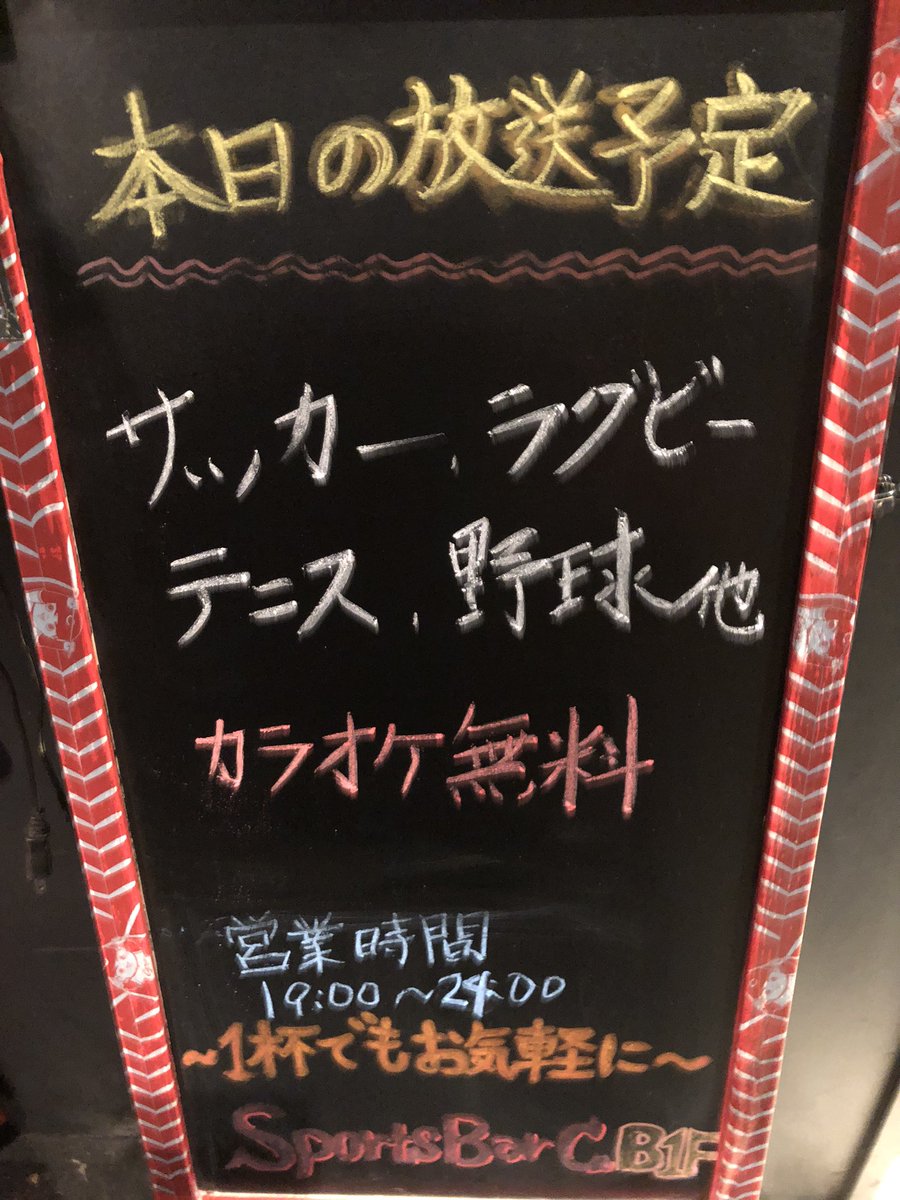 本日の放送予定
サッカー、ラグビー
テニス、野球他
カラオケ無料
営業時間
19:00～24:00
~1杯でもお気軽に~
SportsBar C. B1F